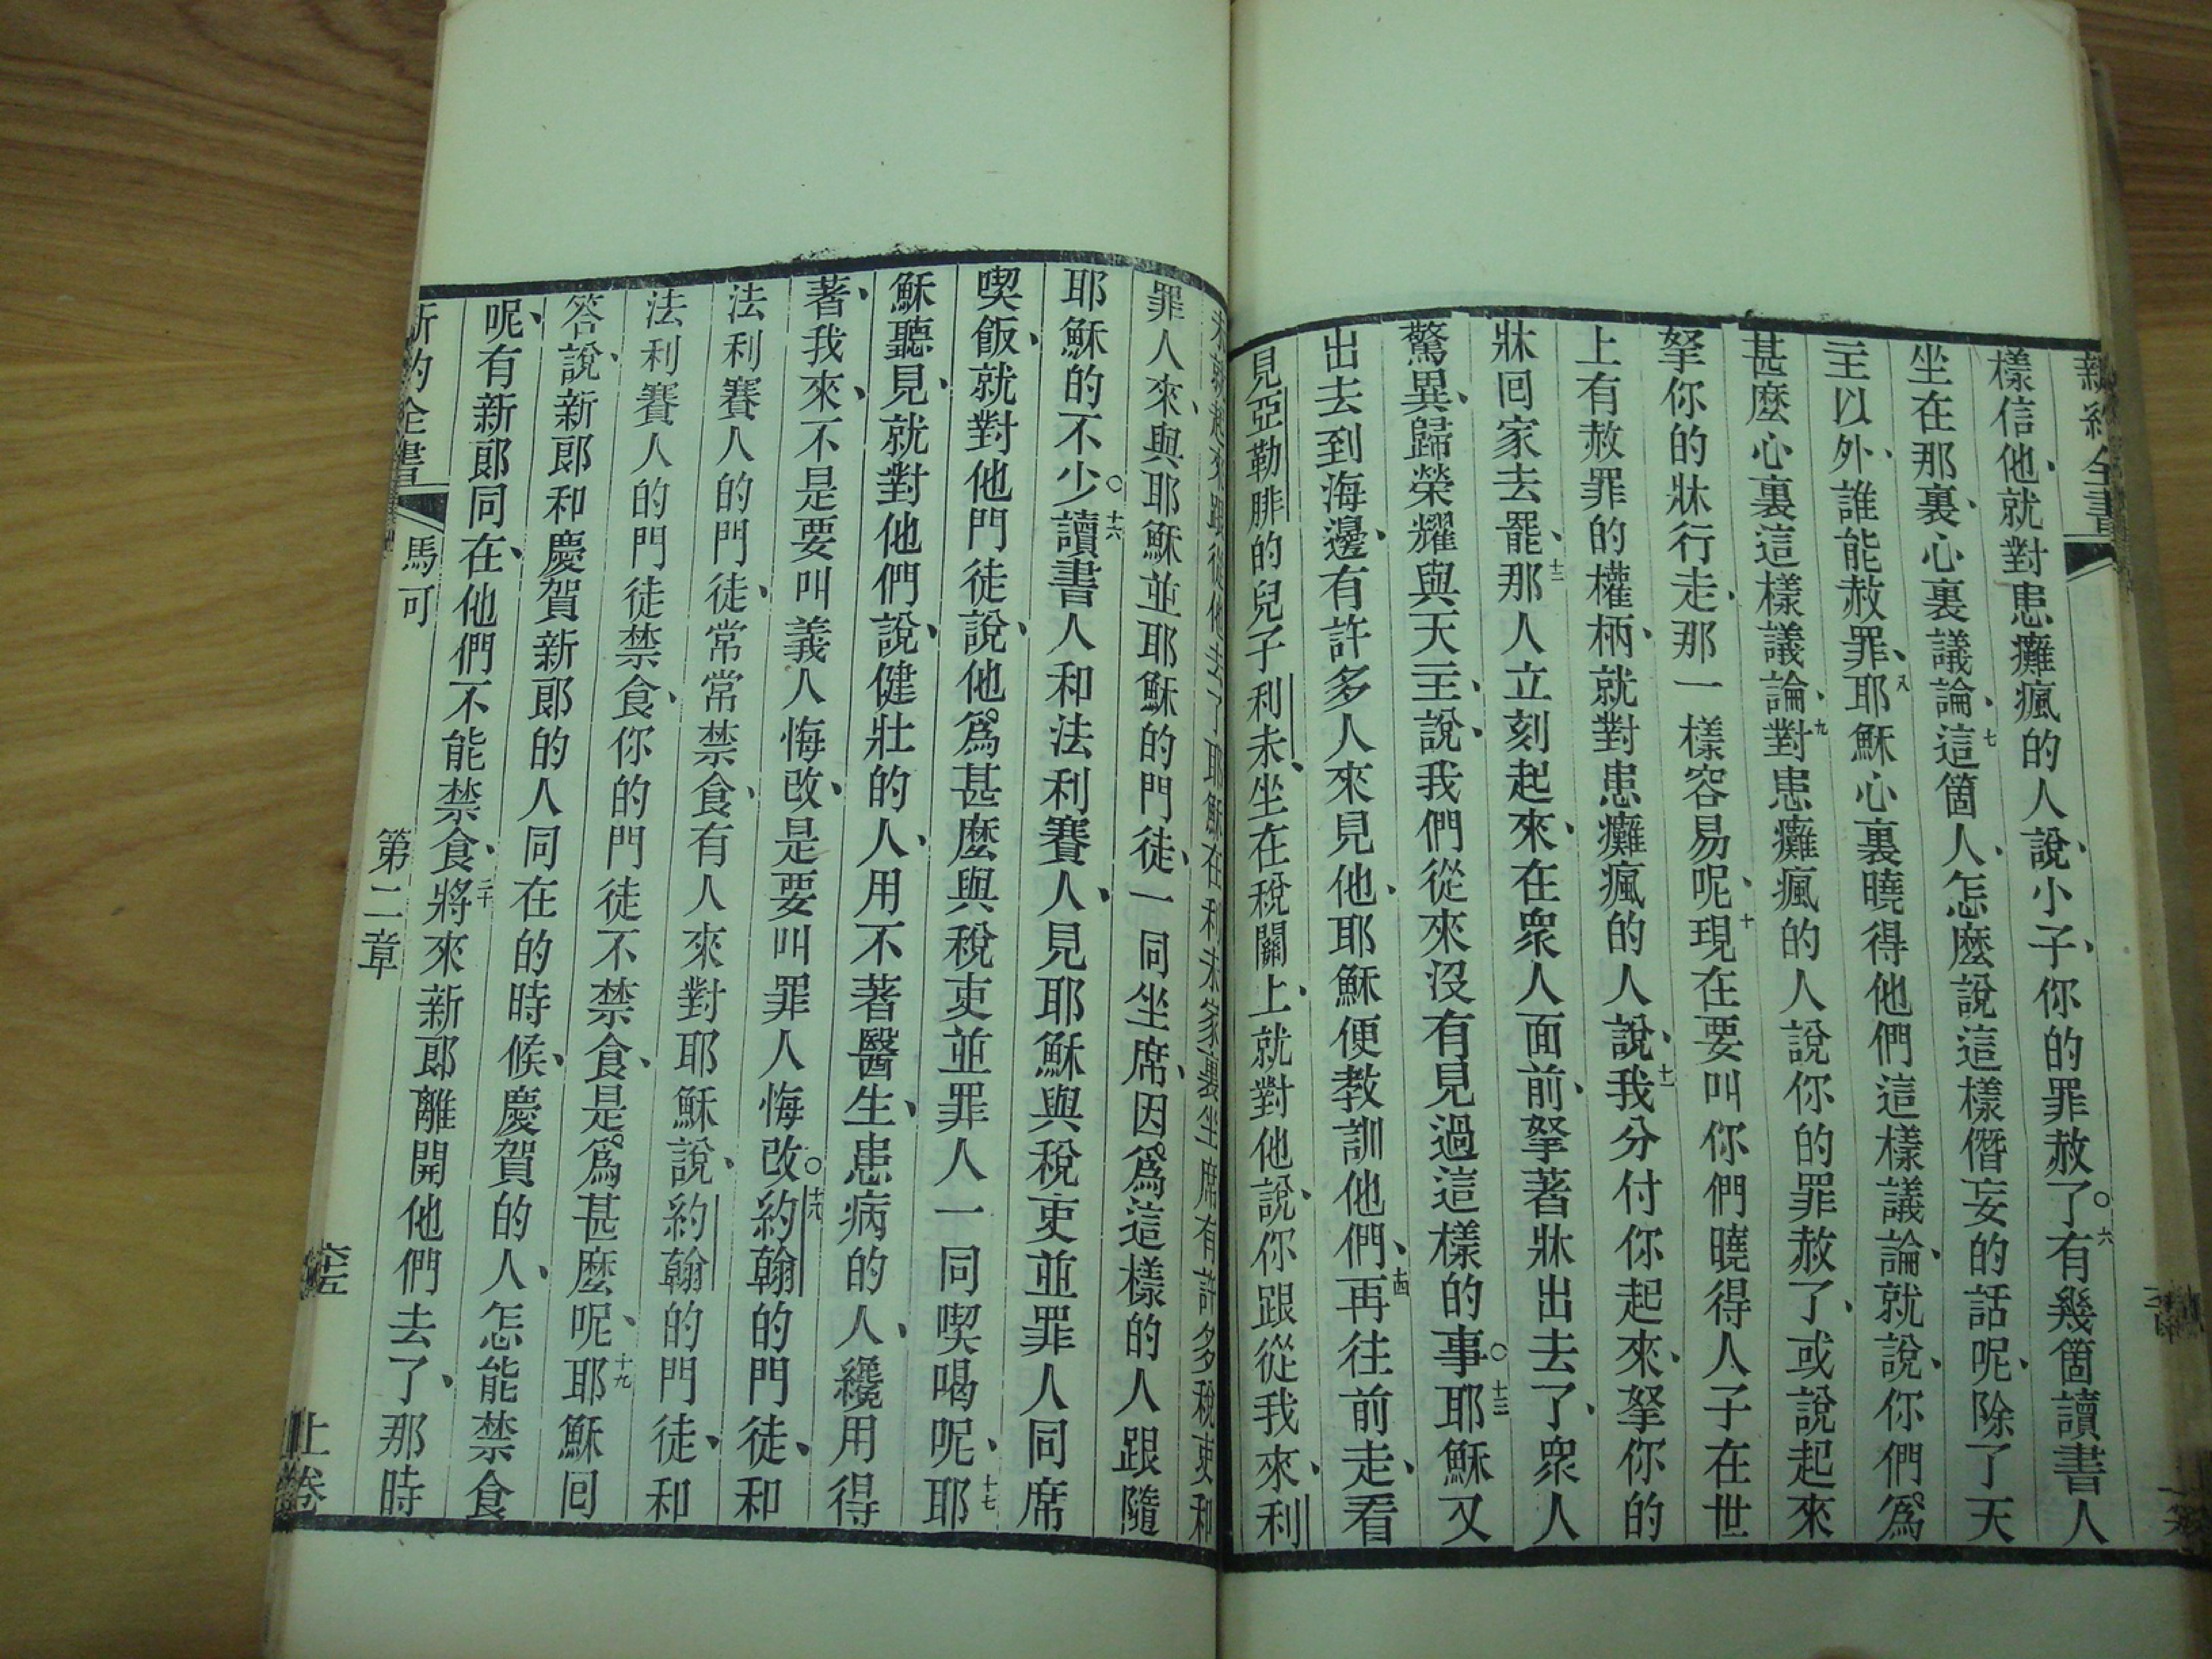 新約全書
樣信他、就對患癱瘋的人說、小子、你的罪赦了。六有幾箇讀書人
坐在那裏、心裏議論、七這箇人、怎麼說這樣僭妄的話呢、除了天
主以外、誰能赦罪、八耶穌心裏曉得他們這樣議論、就說、你們爲
甚麼心裏這樣議論、九對患癱瘋的人說你的罪赦了、或說起來
拏你的牀行走、那一樣容易呢、十現在要叫你們曉得人子在世
上有赦罪的權柄、就對患癱瘋的人說、十一我分付你起來、拏你的
牀回家去罷、十二那人立刻起來、在衆人面前、拏著牀出去了、衆人
驚異、歸榮耀與天主、說、我們從來沒有見過這樣的事。十三耶穌又
出去到海邊、有許多人來見他、耶穌便教訓他們、十四再往前走、看
見亞勒腓的兒子利未、坐在稅關上、就對他說、你跟從我來、利
未就起來跟從他去了耶穌在利未家裏坐席有許多稅吏和
罪人來、與耶穌並耶穌的門徒、一同坐席、因爲這樣的人跟隨
耶穌的不少。十六讀書人和法利賽人、見耶穌與稅吏並罪人同席
喫飯、就對他門徒說、他爲甚麼與稅吏並罪人一同喫喝呢、十七耶
穌聽見、就對他們說、健壯的人、用不著醫生、患病的人、纔用得
著、我來、不是要叫義人悔改、是要叫罪人悔改。十八約翰的門徒、和
法利賽人的門徒、常常禁食、有人來對耶穌說、約翰的門徒、和
法利賽人的門徒禁食、你的門徒不禁食、是爲甚麼呢、十九耶穌回
答說、新郎和慶賀新郎的人同在的時候、慶賀的人、怎能禁食
呢、有新郎同在、他們不能禁食、二十將來新郎離開他們去了、那時
新約全書 馬可 第二章 上卷